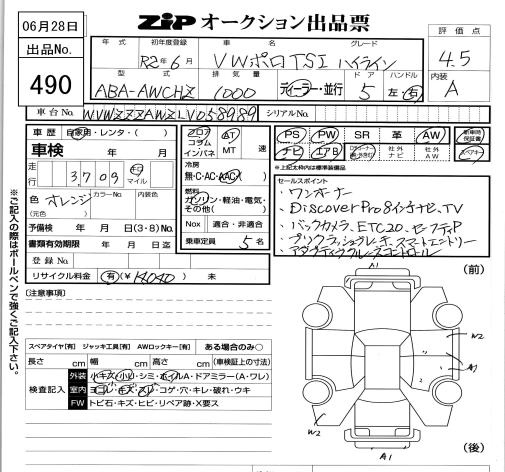 06月28日
ZIP オークション出品票
出品No.
490
評価点
4.5
内装
A
年式 初年度登録 車名 グレード
R2年6月 VWポロTSI ハイライン
型式 排気量 ドア ハンドル
ABA-AWCHZ 1000 ディーラー・並行 5 左・右
車台No. WVWZZZAWZLU058989 シリアルNo.
車歴 自家用・レンタ・( )
車検 年 月
走行 3,709 キロ マイル
色 オレンジ カラーNo. 内装色
(元色)
予備検 年 月 日(3・8)No.
書類有効期限 年 月 日迄
登録No.
リサイクル料金 有(¥14040) 未
フロア コラム インパネ AT MT 速
冷房
無・C・AC・AAC
燃料
ガソリン・軽油・電気・その他( )
Nox 適合・非適合
乗車定員 5名
PS PW SR 革 AW 新車時保証書
ナビ エアB 社外ナビ 社外AW
※上記太枠内は標準装備品
セールスポイント
・ワンオーナー
・Discover Pro8インチナビ、TV
・バックカメラ、ETC2.0、セーフティP
・プリクラッシュブレーキ、スマートエントリー
・アダプティブクルーズコントロール
※ご記入の際はボールペンで強くご記入下さい。
[注意事項]
スペアタイヤ[有] ジャッキ工具[有] AWロックキー[有] ある場合のみ○
長さ cm 幅 cm 高さ cm (車検証上の寸法)
検査記入
外装 小キズ・小凹・シミ・ホイルA・ドアミラー(A・ワレ)
室内 ヨゴレ・キズ・スレ・コゲ・穴・キレ・破れ・ウキ
FW トビ石・キズ・ヒビ・リペア跡・X要ス
(前)
A1
W2
A1
W2
A1
(後)